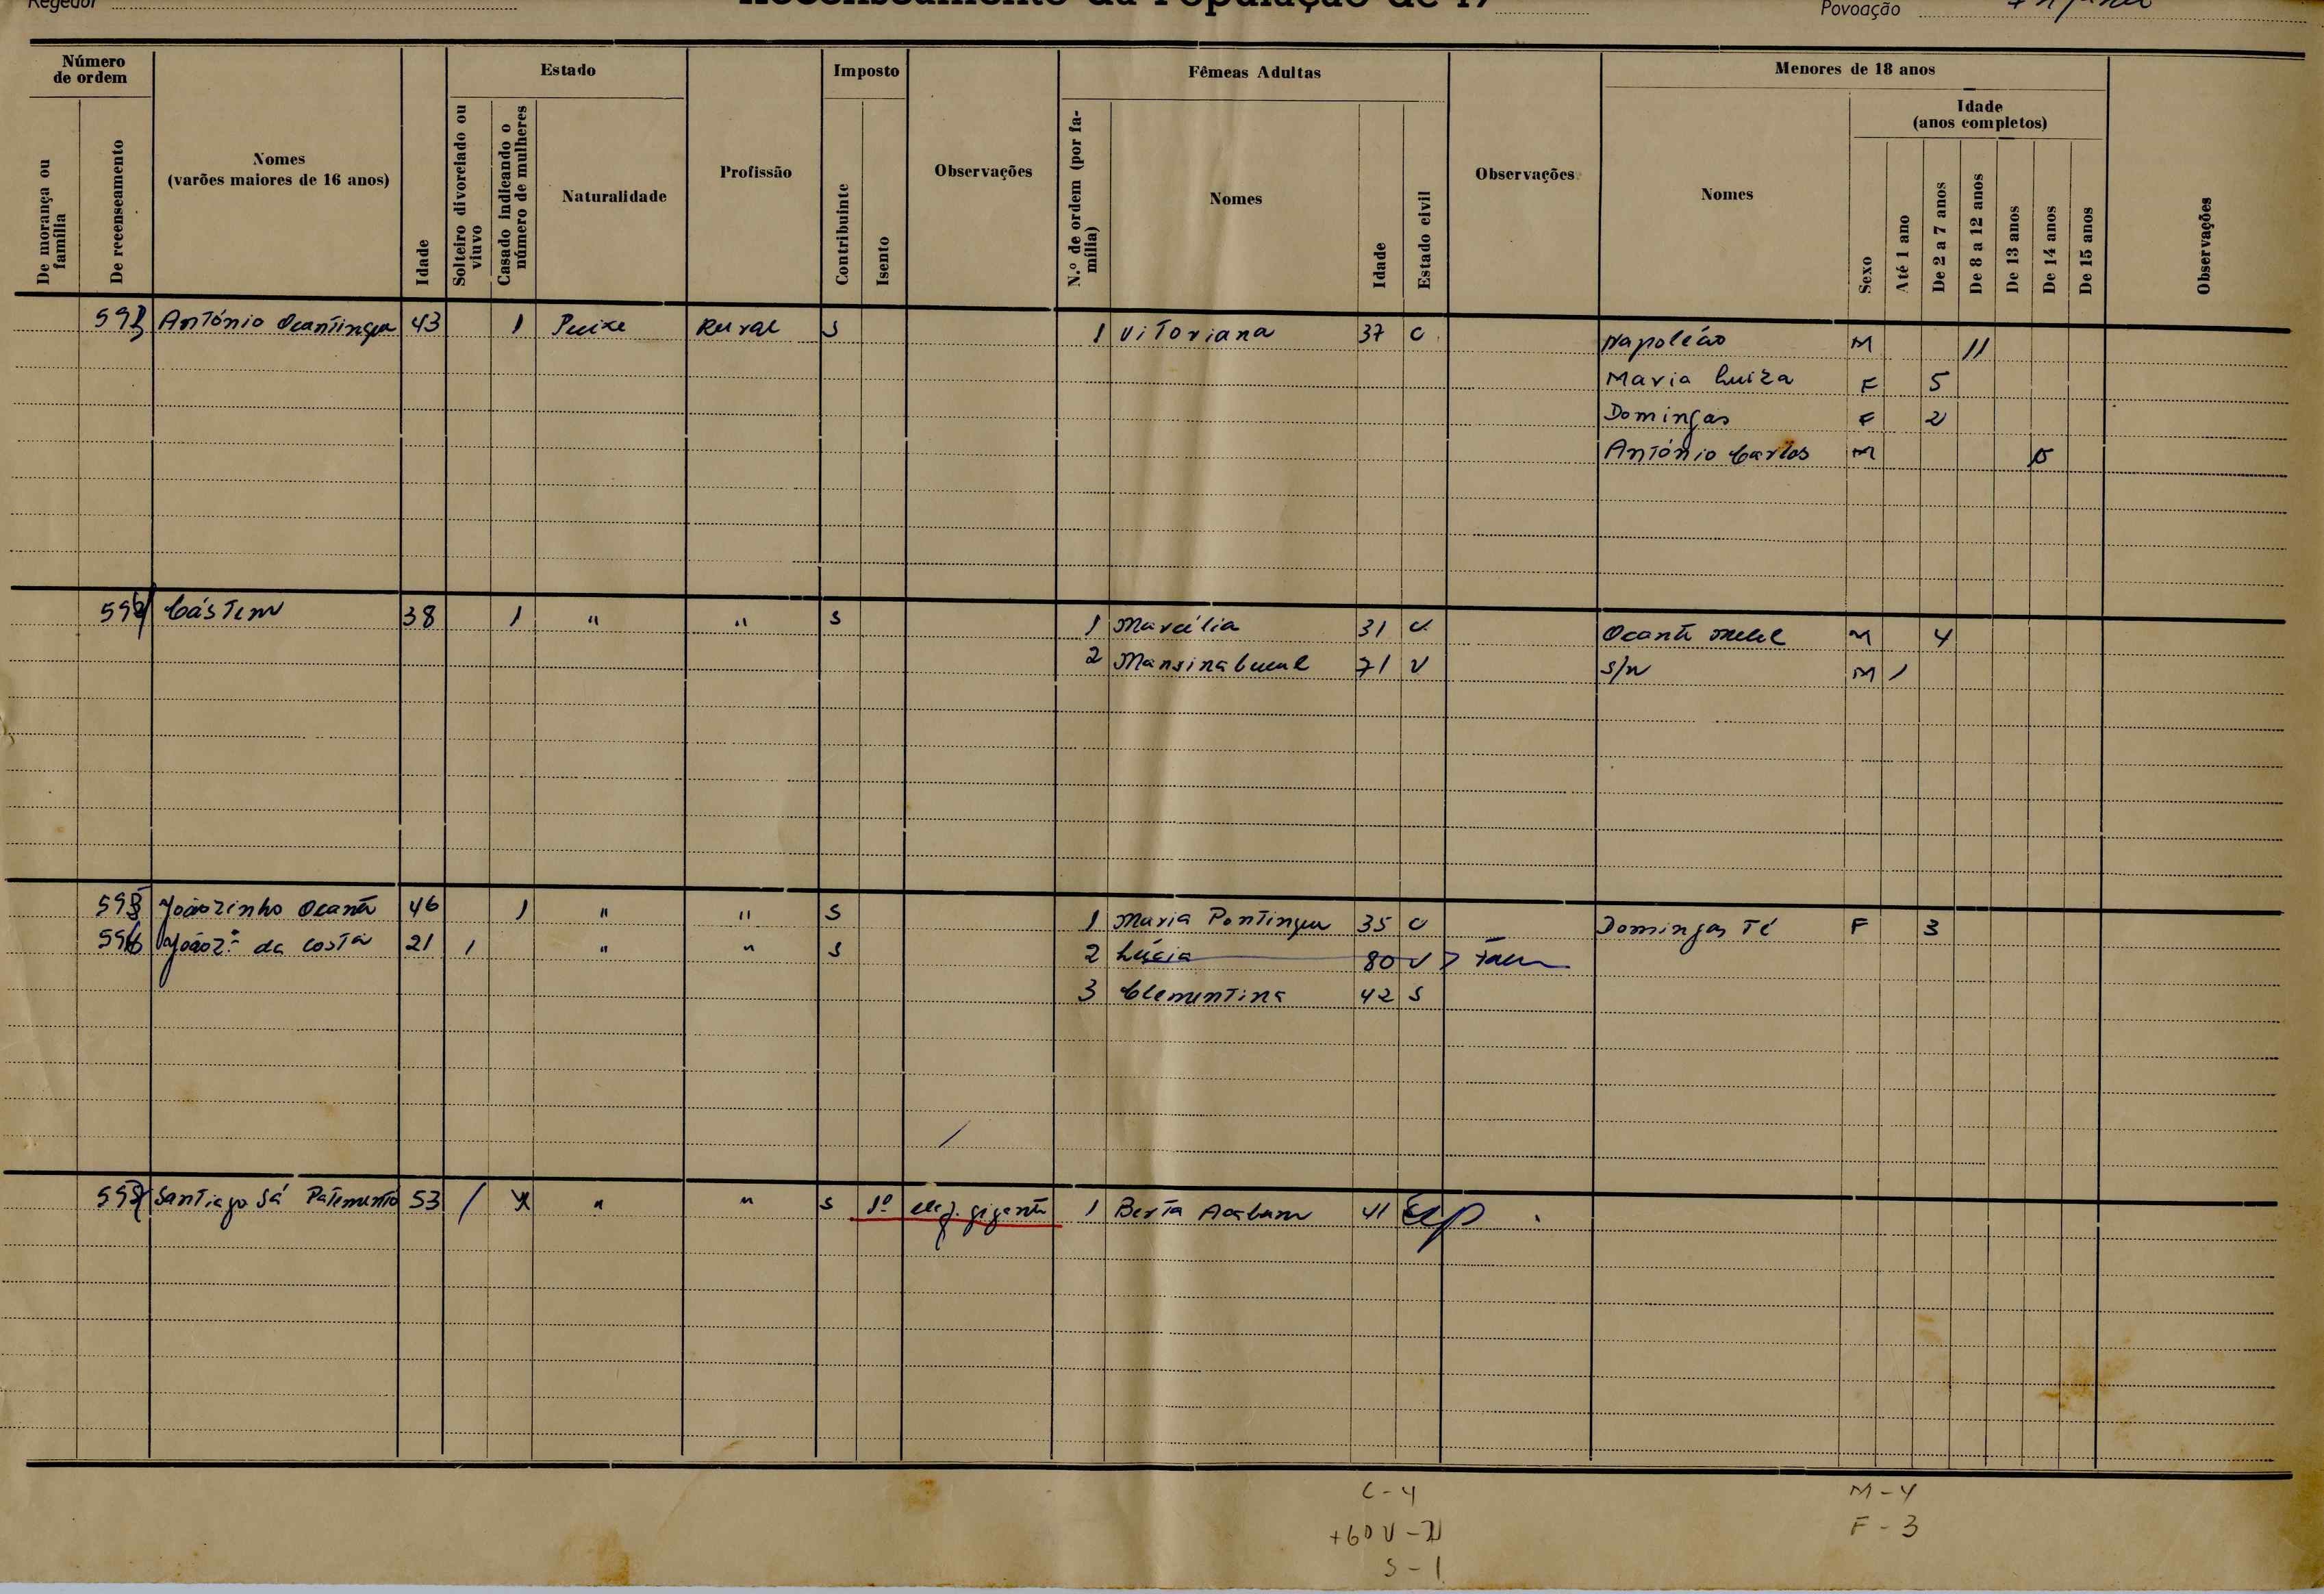 Regedor
Recenseamento da População de 19
Povoação
Número de ordem
Estado
Imposto
Fêmeas Adultas
Menores de 18 anos
De morança ou família
De recenseamento
Nomes (varões maiores de 16 anos)
Idade
Solteiro divorciado ou viuvo
Casado indicando o número de mulheres
Naturalidade
Profissão
Contribuinte
Isento
Observações
N.º de ordem (por família)
Nomes
Idade
Estado civil
Observações
Nomes
Sexo
Idade (anos completos)
Até 1 ano
De 2 a 7 anos
De 8 a 12 anos
De 13 anos
De 14 anos
De 15 anos
Observações
593 António Ocantinga 43 1 Peixe Rural S 1 Vitoriana 37 C Napoleão M 11
Maria Luiza F 5
Domingas F 2
António Carlos M 15
594 Cástem 38 1 " " S 1 Marcília 31 C Ocante M 4
2 71 V S/N M 1
595 Joãozinho Ocante 46 1 " " S 1 Maria Pontinga 35 C Domingas Té F 3
596 Joãoz.º da Costa 21 1 " " S 2 Lúcia 80 V
3 Clementina 42 S
597 Santiago Sá 53 / X " " S 1º elef. gigante 1 Berta 41
C - 4
+60 V - 2
S - 1
M - 4
F - 3